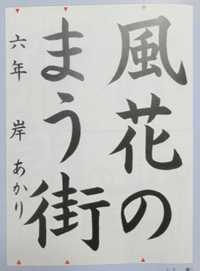 風花の
まう街
六年 岸 あかり